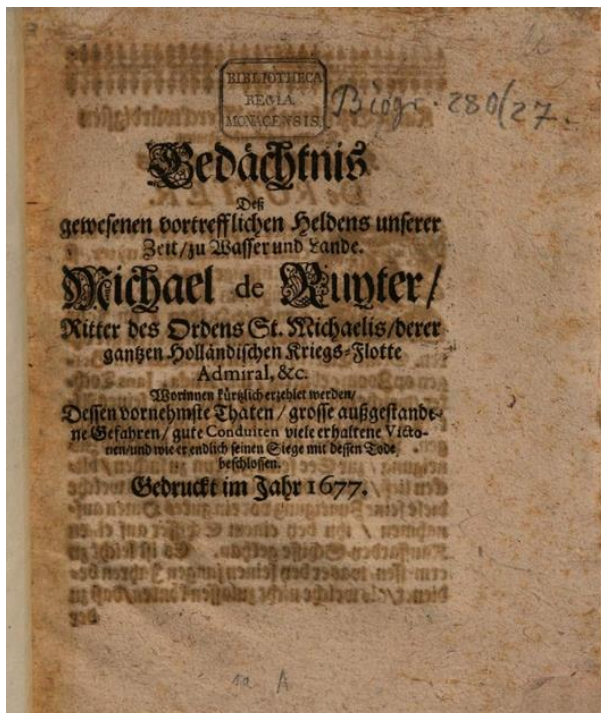 BIBLIOTHECA
REGIA
MONACENSIS.
Biogr. 280/27.
Gedächtnis
Deß
gewesenen vortrefflichen Heldens unserer
Zeit/zu Wasser und Lande.
Michael de Ruyter/
Ritter des Ordens St. Michaelis/derer
gantzen Holländischen Kriegs-Flotte
Admiral, &c.
Worinnen kürtzlich erzehlet werden/
Dessen vornehmste Thaten / grosse außgestande-
ne Gefahren / gute Conduiten viele erhaltene Victo-
rien/und wie er endlich seinen Siege mit dessen Tode
beschlossen.
Gedruckt im Jahr 1677.